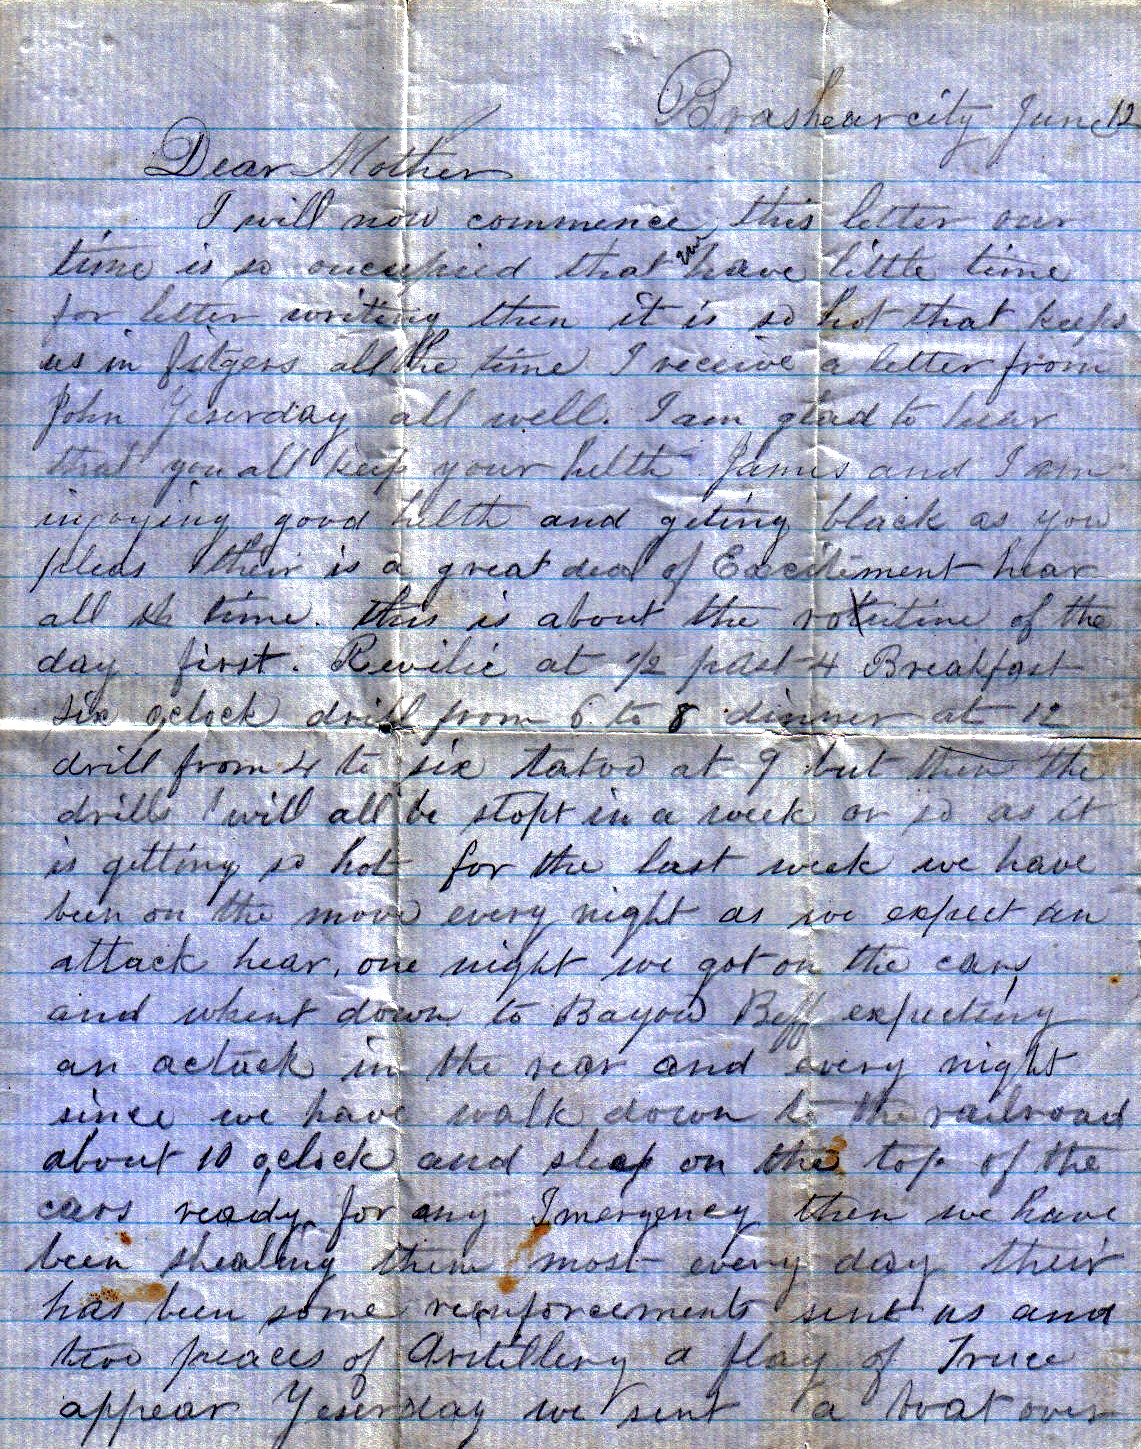 Brashear city June 12
Dear Mother
I will now commence this letter our
time is so oucupied that we have little time
for letter writing then it is so hot that keeps
us in fitgers all the time I receive a letter from
John Yeserday all well. I am glad to hear
that you all keep your helth James and I am
injoying good helth and geting black as you
pleas their is a great deal of Excitement hear
all the time. this is about the routine of the
day first. Revilie at 1/2 past 4 Breakfast
six oclock drill from 6 to 8 dinner at 12
drill from 4 to six tatoo at 9 but then the
drills will all be stopt in a week or so as it
is getting so hot for the last week we have
been on the move every night as we expect an
attack hear. one night we got on the cars
and whent down to Bayou Beff expecting
an actack in the rear and every night
since we have walk down to the railroad
about 10 oclock and sleep on the top of the
cars ready for any Imergency then we have
been shealing them most every day their
has been some reinforcements sent us and
two peaces of Artillery a flag of Truce
appear Yeserday we sent a boat over